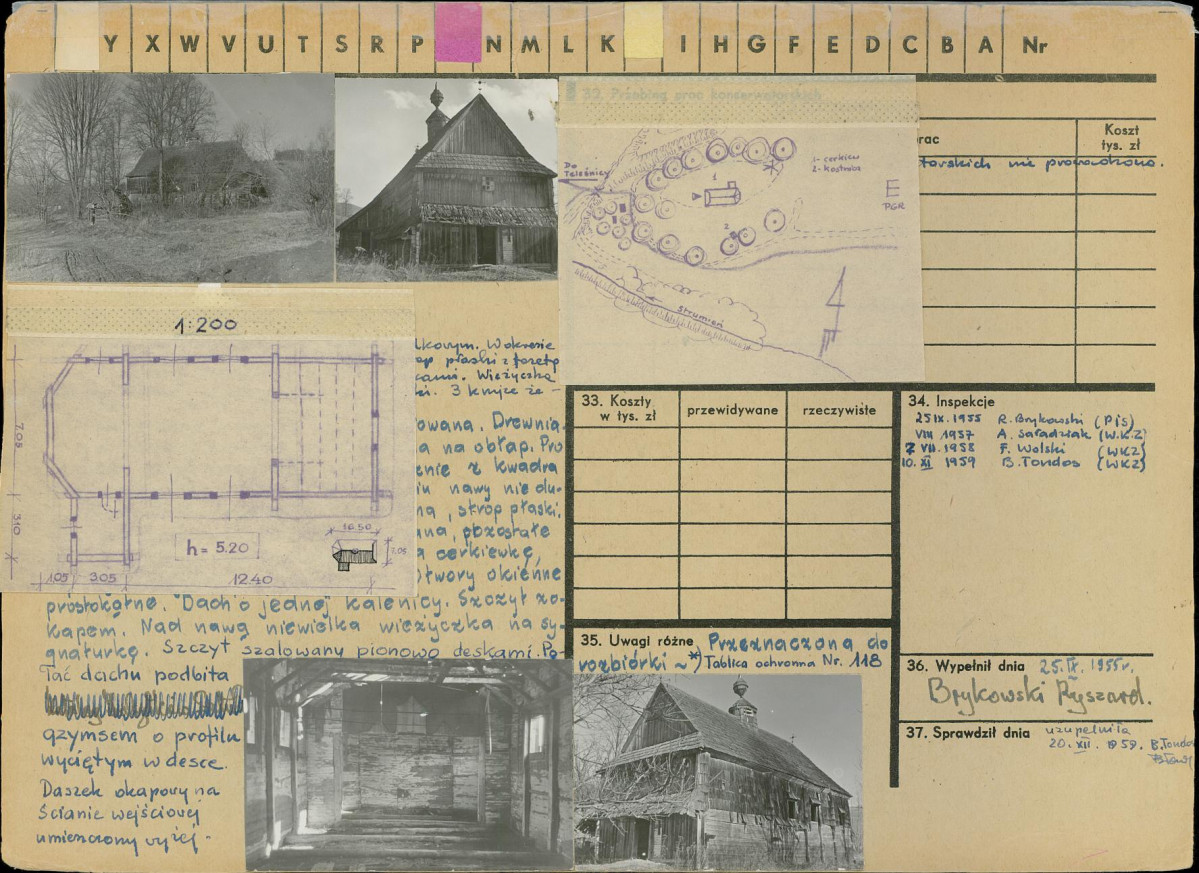 Y X W V U T S R P N M L K I H G F E D C B A Nr
32. Przebieg prac konserwatorskich
rac
Koszt
tys. zł
torskich nie prowadzono.
Do
Teleśnicy
1- cerkiew
2- kostnica
1
2
E
PGR
strumień
1:200
7.05
310
105 305 12.40
h = 5.20
10.50
7.05
łkowym. W okresie
op płaski z fasetą
kami. Wieżyczka
3 kruje że-
owana. Drewnia-
a na obłap. Pro
enie z kwadra
iu nawy nie du-
na, strop płaski.
ana, pozostałe
a cerkiewkę,
Otwory okienne
prostokątne. Dach o jednej kalenicy. Szczyt zo-
kapem. Nad nawą niewielka wieżyczka na sy-
gnaturkę. Szczyt szalowany pionowo deskami. Po-
łać dachu podbita
gzymsem o profilu
wyciętym w desce.
Daszek okapowy na
ścianie wejściowej
umieszczony wyżej -
33. Koszty
w tys. zł
przewidywane
rzeczywiste
34. Inspekcje
25 IX. 1955 R. Brykowski (PIS)
VIII 1957 A. Saładziak (W.K.Z)
7 VII. 1958 F. Wolski (WKZ)
10. XI 1959 B. Tondos (WKZ)
35. Uwagi różne Przeznaczona do
rozbiórki ~*) Tablica ochronna Nr. 118
36. Wypełnił dnia 25.IX. 1955r.
Brykowski Ryszard.
37. Sprawdził dnia uzupełniła
20. XII. 1959. B. Tondos